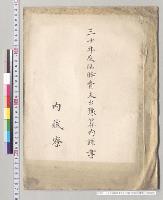 三十年度臨時費支出豫算内訳書
内蔵寮